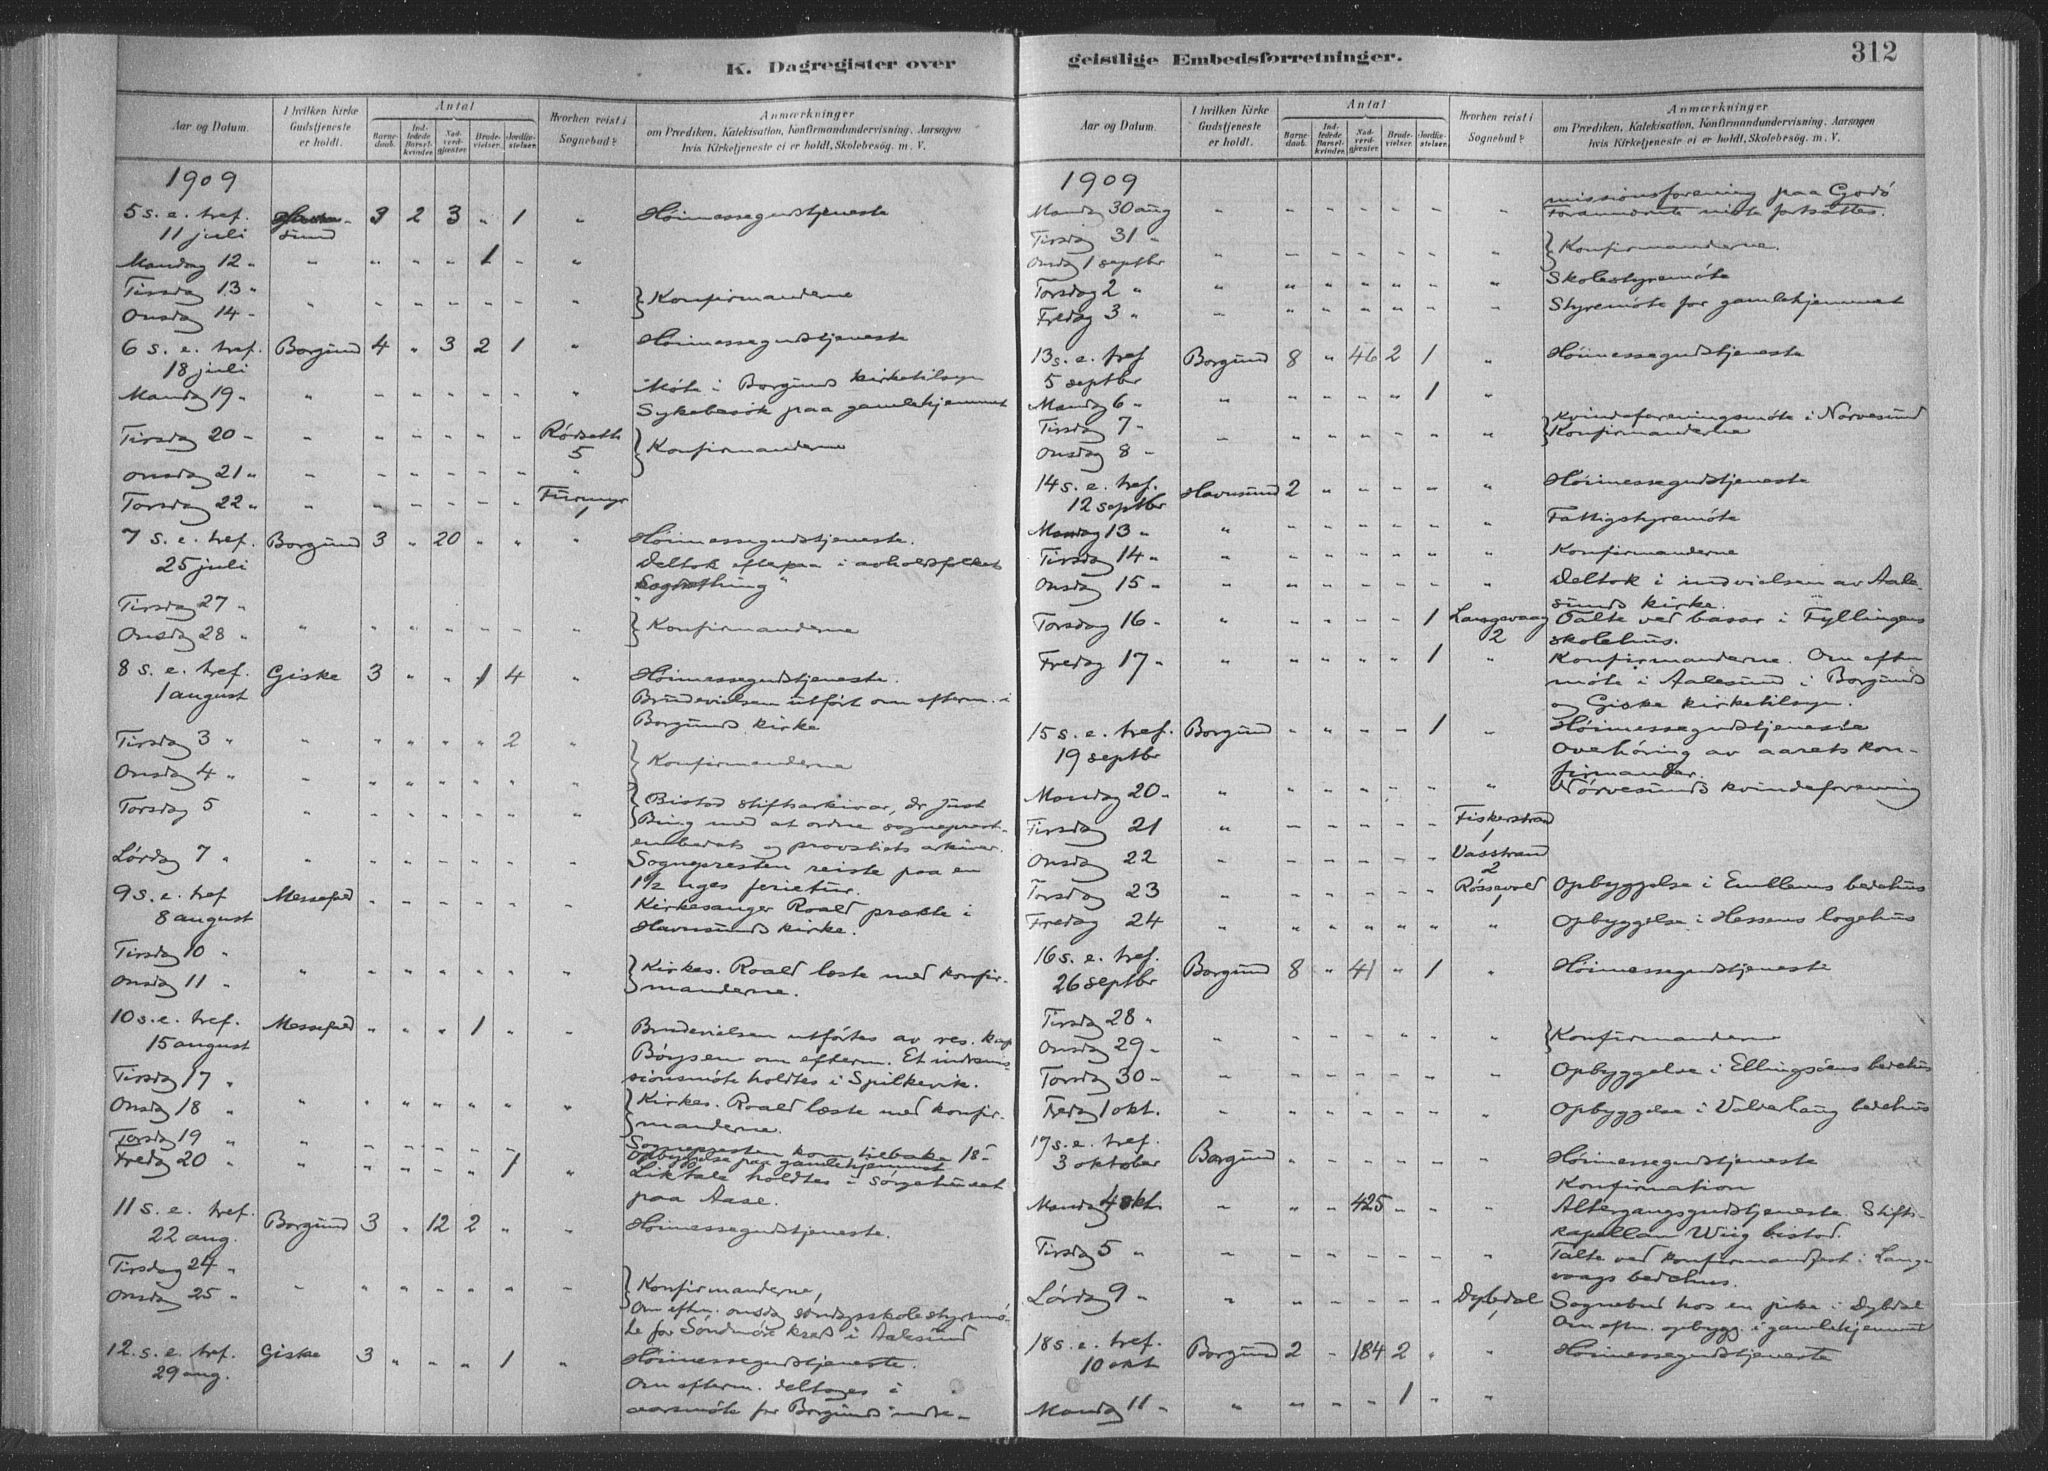 K. Dagregister over geistlige Embedsforretninger.
312
Aar og Datum.
I hvilken Kirke Gudstjeneste er holdt.
Antal
Barnedaab.
Indledede Barselkvinder.
Nadverdgjester.
Brudevielser.
Jordfæstelser.
Hvorhen reist i Sognebud?
Anmærkninger
om Prædiken, Katekisation, Konfirmandundervisning, Aarsagen
hvis Kirketjeneste ei er holdt, Skolebesøg. m. V.
1909
5 s. e. tref. 3 2 3 „ 1 Høimessegudstjeneste
11 juli sund
Mandag 12 „ „ „ „ „ 1 „ „
Tirsdag 13 „
Onsdag 14 „ „ „ „ „ „ „ „ } Konfirmanderne
6 s. e. tref. Borgund 4 „ 3 2 1 „ Høimessegudstjeneste
18 juli
Mandag 19 „ „ „ „ „ „ „ „ Møte i Borgunds kirketilsyn
Sykebesøk paa gamlehjemmet
Tirsdag 20 „ „ „ „ „ „ „ Rødsætt 5 } Konfirmanderne
Onsdag 21 „ „ „ „ „ „ „ „
Torsdag 22 „ „ „ „ „ „ „ Furmyr 1
7 s. e. tref. Borgund 3 „ 20 „ „ „ Høimessegudstjeneste.
25 juli Deltok efterpaa i avholdsfolkets
„Sogdething"
Tirsdag 27 „
Onsdag 28 „ „ „ „ „ „ „ „ } Konfirmanderne
8 s. e. tref. Giske 3 „ „ 1 4 „ Høimessegudstjeneste.
1 august Brudevielsen utført om efterm. i
Borgunds kirke
Tirsdag 3 „ „ „ „ „ „ 2 „
Onsdag 4 „ „ „ „ „ „ „ „ } Konfirmanderne
Torsdag 5 „ „ „ „ „ „ „ } Bistod stiftsarkivar, dr. Just
Bing med at ordne sogneprest-
embedets og provstiets arkiver.
Lørdag 7 „ „ „ „ „ „ „ „ Sognepresten reiste paa en
1½ uges ferietur.
9 s. e. tref Messefald „ „ „ „ „ „ Kirkesanger Roald prækte i
8 august Havnsunds kirke.
Tirsdag 10 „
Onsdag 11 „ „ „ „ „ „ „ „ } Kirkes. Roald læste med konfir-
manderne.
10 s. e. tref. Messefald „ „ „ 1 „ „ Brudevielsen utførtes av res. kap
15 august Børysen om efterm. Et indremis-
sionsmøte holdtes i Spilkevik.
Tirsdag 17 „
Onsdag 18 „ „ „ „ „ „ „ „ } Kirkes. Roald læste med konfir-
manderne.
Torsdag 19 „ „ „ „ „ „ „ Sognepresten kom tilbake 18-
Opbyggelse paa gamlehjemmet
Fredag 20 „ „ „ „ „ „ 1 „ Liktale holdtes i sørgehuset
paa Aase.
11 s. e. tref. Borgund 3 „ 12 2 „ „ Høimessegudstjeneste.
22 aug.
Tirsdag 24 „
Onsdag 25 „ „ „ „ „ „ „ „ } Konfirmanderne,
Om eftm. onsdag søndagsskolestyremø-
te for Søndmøre kreds i Aalesund
12. s. e. tref. Giske 3 „ „ „ 1 „ Høimessegudstjeneste.
29 aug. Om efterm. deltoges i
aarsmøte for Borgunds indre-
Aar og Datum.
I hvilken Kirke Gudstjeneste er holdt.
Antal
Barnedaab.
Indledede Barselkvinder.
Nadverdgjester.
Brudevielser.
Jordfæstelser.
Hvorhen reist i Sognebud?
Anmærkninger
om Prædiken, Katekisation, Konfirmandundervisning, Aarsagen
hvis Kirketjeneste ei er holdt, Skolebesøg. m. V.
1909
missionsforening paa Godø
Mandag 30 aug „ „ „ „ „ „ „ møte fortsattes.
Tirsdag 31 „
Onsdag 1 septbr „ „ „ „ „ „ „ } Konfirmanderne.
Torsdag 2 „ „ „ „ „ „ „ „ Skolestyremøte
Fredag 3 „ „ „ „ „ „ „ „ Styremøte for gamlehjemmet
13 s. e. tref Borgund 8 „ 46 2 1 „ Høimessegudstjeneste
5 septbr
Mandag 6 „ „ „ „ „ „ 1 „
Tirsdag 7 „ } Kvindeforeningsmøte i Nørvesund
Onsdag 8 „ „ „ „ „ „ „ „ Konfirmanderne
14 s. e. tref. Havnsund 2 „ „ „ „ „ Høimessegudstjeneste
12 septbr
Mandag 13 „ „ „ „ „ „ „ „ Fattigstyremøte
Tirsdag 14 „ „ „ „ „ „ „ „ Konfirmanderne
Onsdag 15 „ „ „ „ „ „ „ „ Deltok i indvielsen av Aale-
sunds kirke.
Torsdag 16 „ „ „ „ „ „ 1 Langevaag 2 Talte ved basar i Fyllingens
skolehus.
Fredag 17 „ „ „ „ „ „ 1 „ Konfirmanderne. Om eftm
møte i Aalesund i Borgunds
og Giske kirketilsyn.
15 s. e. tref. Borgund „ „ „ „ 1 „ Høimessegudstjeneste
19 septbr Overhøring av aarets kon-
firmander.
Mandag 20 „ „ „ „ „ „ „ „ Nørvesunds kvindeforening
Tirsdag 21 „ „ „ „ „ „ Fiskerstrand 1
Onsdag 22 „ „ „ „ „ „ Vasstrand 2
Torsdag 23 „ „ „ „ „ „ Røssevold 1 Opbyggelse i Emblems bedehus
Fredag 24 „ „ „ „ „ „ „ Opbyggelse i Hessens logehus
16 s. e. tref. Borgund 8 „ 41 „ 1 „ Høimessegudstjeneste
26 septbr
Tirsdag 28 „
Onsdag 29 „ „ „ „ „ „ „ „ } Konfirmanderne
Torsdag 30 „ „ „ „ „ „ „ „ Opbyggelse i Ellingsøens bedehus
Fredag 1 okt. „ „ „ „ „ „ „ Opbyggelse i Valderhaug bedehus
17 s. e. tref. Borgund „ „ „ „ „ „ Høimessegudstjeneste
3 oktober Konfirmation
Mandag 4 okt. „ „ „ 425 „ „ „ Altergangsgudstjeneste. Stifts-
kapellan Wiig bistod.
Tirsdag 5 „ „ „ „ „ „ „ „ Talte ved konfirmandfest i Lange-
vaags bedehus.
Lørdag 9 „ „ „ „ „ „ „ Dybdal 1 Sognebud hos en pike i Dybdal
Om eftm. opbygg. i gamlehjemmet
18 s. e. tref. Borgund 2 „ 184 2 „ „ Høimessegudstjeneste
10 okt
Mandag 11 „ „ „ „ „ 1 „ „